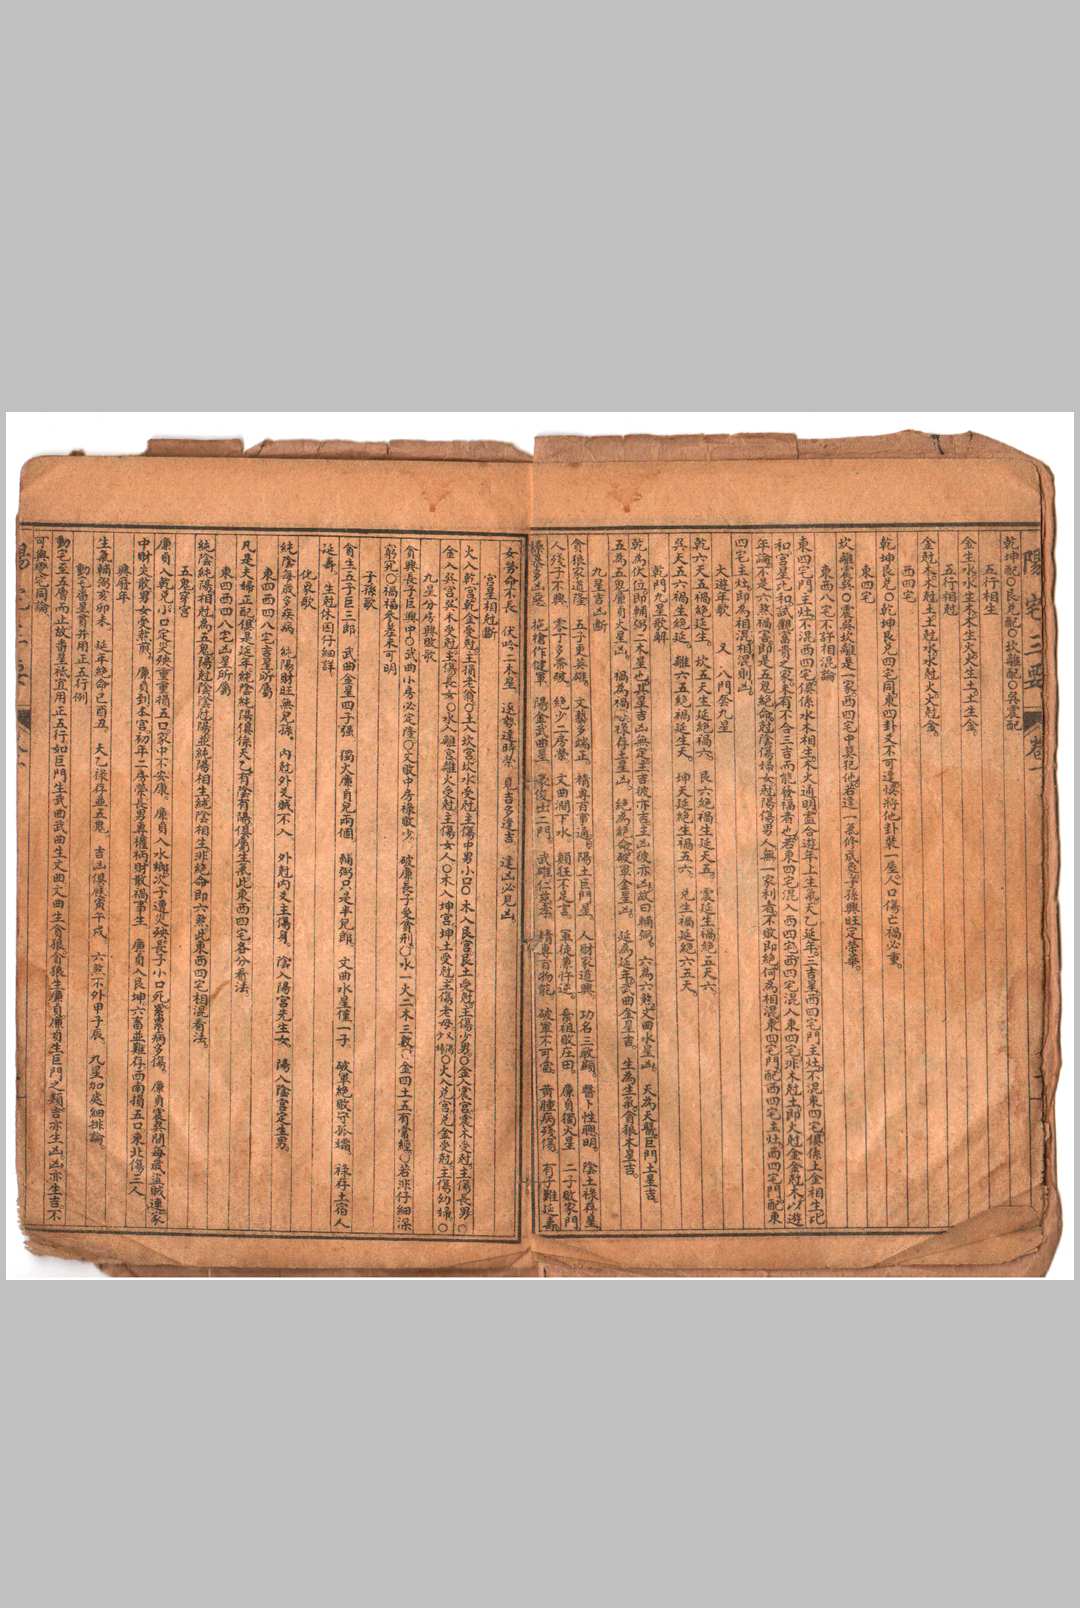 陽宅三要 卷一
乾坤配○艮兌配○坎離配○巽震配
五行相生
金生水水生木木生火火生土土生金
五行相尅
金尅木木尅土土尅水水尅火火尅金
西四宅
乾坤艮兌○乾坤艮兌四宅同東四卦爻不可逢悞將他卦裝一屋人口傷亡禍必重
東四宅
坎離震巽○震巽坎離是一家西四宅中莫犯他若逢一氣修成象子孫興旺定榮華
東西八宅不許相混論
東四宅門主灶不混西四宅俱係水木相生木火通明盃合遊年上生氣天乙延年三吉星西四宅門主灶不混東四宅俱係土金相生比
和宮星也和試觀富貴之家未有不合三吉而能發福者也若東四宅混入西四宅西四宅混入東四宅非木尅土即火尅金金尅木以遊
年論不是六煞禍害即是五鬼絕命尅陰傷婦女尅陽傷男人無一家利者不敗即絕何為相混東四宅門配西四宅主灶西四宅門配東
四宅主灶即為相混相混則凶
大遊年歌 又 八門套九星
乾六天五禍絕延生 坎五天生延絕禍六 艮六絕禍生延天五 震延生禍絕五天六
巽天五六禍生絕延 離六五絕禍延生天 坤天延絕生禍五六 兌生禍延絕六五天
乾門九星歌解
乾為伏位即輔弼二木星也其星吉凶無定主吉彼亦吉主凶彼亦凶故曰輔弼 六為六煞文曲水星凶 天為天醫巨門土星吉
五為五鬼廉貞火星凶 禍為禍害祿存土星凶 絕為絕命破軍金星凶 延為延年武曲金星吉 生為生氣貪狼木星吉
九星吉凶斷
貪狼家道隆 五子更英雄 文藝多端正 精專百事通 陽土巨門星 人財家道興 功名三敢顯 醫卜性聰明 陰土祿存星
人殘子不興 零丁多帶破 絕少二房榮 文曲澗下水 顛狂不足言 軍徒兼忤逆 吞祖敗庄田 廉貞獨火星 二子敗家門
操暴多凶惡 拖槍作健軍 陽金武曲星 豪俊出二門 武雄仁義孝 精專百物能 破軍不可當 黃腫病殘傷 有子難延壽
女勞命不長 伏吟二木星 逐勢逢時榮 見吉多逢吉 逢凶必見凶
宮星相尅斷
火入乾宮乾金受尅主損老翁○土入坎宮坎水受尅主傷中男小口○木入艮宮艮土受尅主傷少男○金入震宮震木受尅主傷長男○
金入巽宮巽木受尅主傷長女○水入離宮離火受尅主傷女人○木入坤宮坤土受尅主傷老母○火入兌宮兌金受尅主傷幼婦○
九星分房興敗歌
貪興長子巨興中○武曲小房必定隆○文敗中房祿敗少 破廉長子受貧刑○水一火二木三數○金四土五有常經○若非仔細深
窮究○禍福參差未可明
子孫歌
貪生五子巨三郎 武曲金星四子强 獨火廉貞兒兩個 輔弼只是半兒郎 文曲水星僅一子 破軍絕敗守孤孀 祿存土宿人
延壽 生尅休囚仔細詳
純陰每歲多疾病 純陽財旺無兒孫 內尅外爻賊不入 外尅內爻主傷身 陰入陽宮先生女 陽入陰宮定生男
東四西四八宅吉星所屬
凡是夫婦正配俱是延年純陰純陽俱係天乙有陰有陽俱屬生氣此東西四宅各分看法
東四西四八宅凶星所屬
純陰純陽相尅為五鬼陽尅陰陰尅陽並純陽相生純陰相生非絕命即六煞此東西四宅相混看法
五鬼穿宮
廉貞入乾兌小口定災殃重重損五口家中不安康 廉貞入水鄉次子遭災殃長子小口死累累病多傷 廉貞震巽間每歲盜賊連家
中財失散男女受熬煎 廉貞到本宮初年二房榮長男專權柄財散禍事生 廉貞入艮坤六畜並難存西南損五口東北傷三人
興廢年
生氣輔弼亥卯未 延年絕命巳酉丑 天乙祿存並五鬼 吉凶俱應寅午戌 六煞不外申子辰 九星加處細排論
動宅番星育并用正五行例
動宅至五層而止故番星祇宜用正五行如巨門生武曲武曲生文曲文曲生貪狼貪狼生廉貞廉貞生巨門之類吉亦生凶凶亦生吉不
可與變宅同論